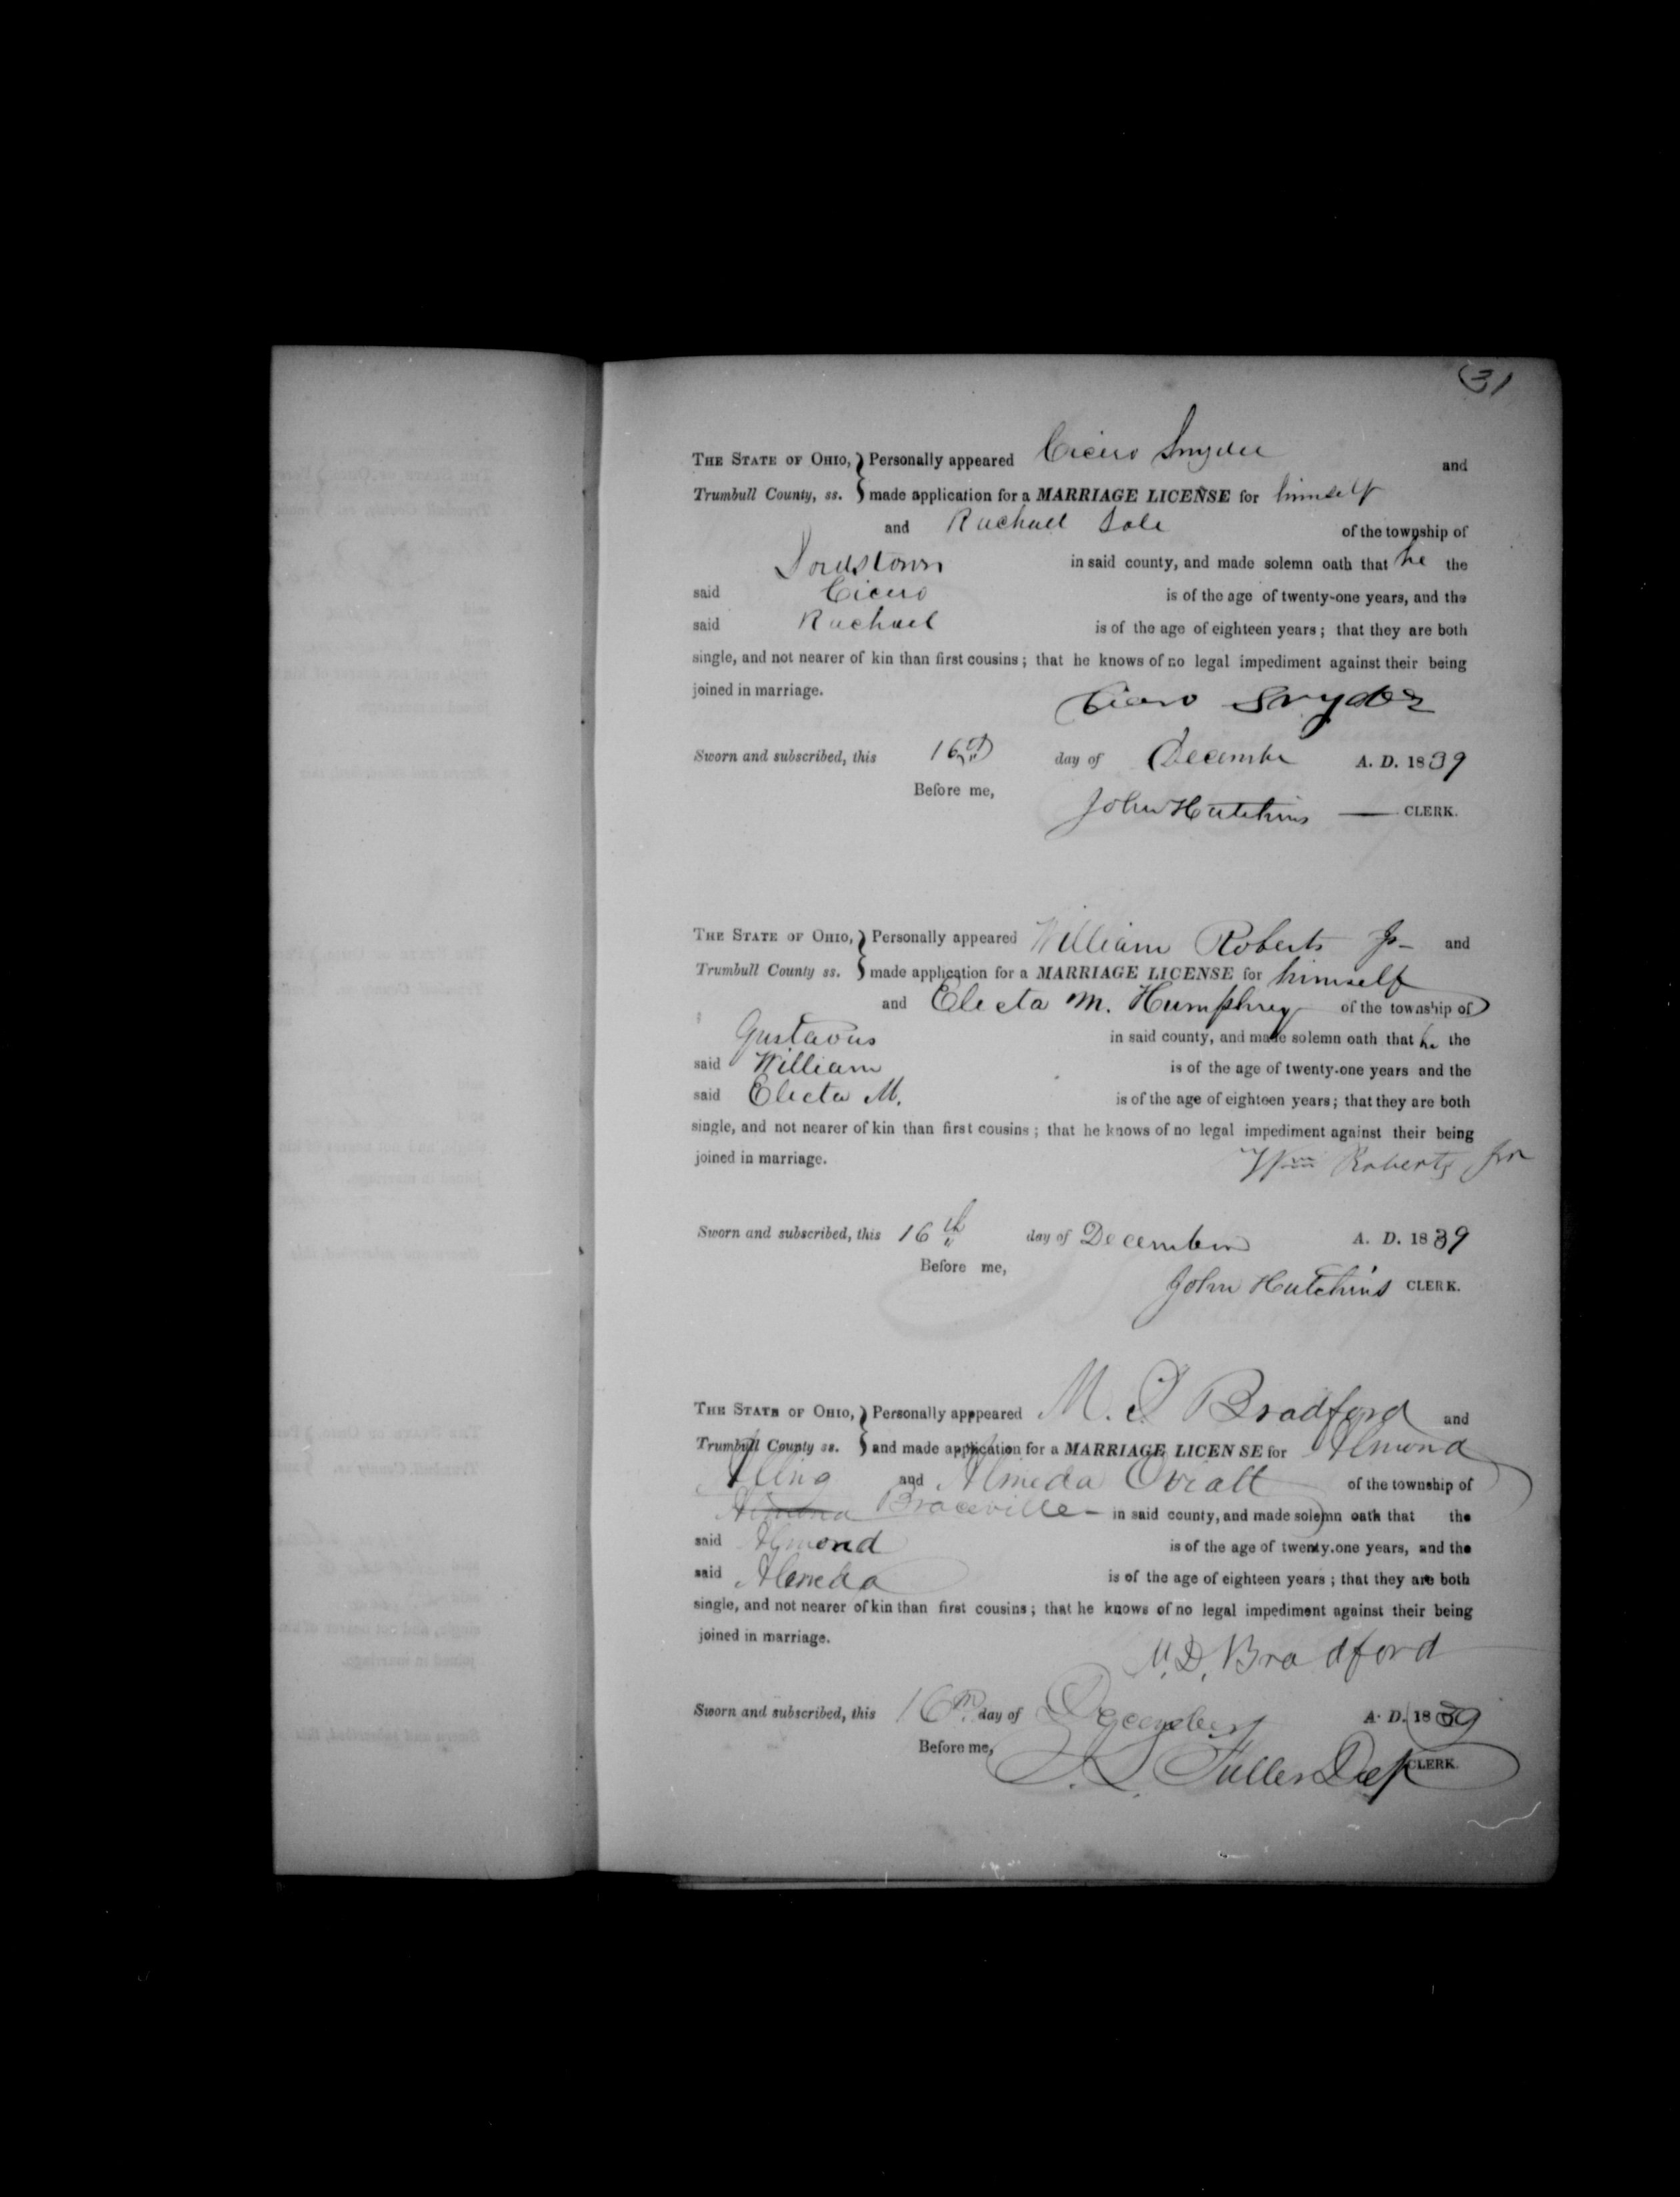 31
THE STATE OF OHIO, } Personally appeared Cicero Snyder and
Trumbull County, ss. } made application for a MARRIAGE LICENSE for himself
and Rachael Sale of the township of
Lordstown in said county, and made solemn oath that he the
said Cicero is of the age of twenty-one years, and the
said Rachael is of the age of eighteen years; that they are both
single, and not nearer of kin than first cousins; that he knows of no legal impediment against their being
joined in marriage.
Cicero Snyder
Sworn and subscribed, this 16th day of December A. D. 1839
Before me,
John Hutchins CLERK.
THE STATE OF OHIO, } Personally appeared William Roberts Jr and
Trumbull County ss. } made application for a MARRIAGE LICENSE for himself
and Electa M. Humphrey of the township of
Gustavus in said county, and made solemn oath that he the
said William is of the age of twenty-one years and the
said Electa M. is of the age of eighteen years; that they are both
single, and not nearer of kin than first cousins; that he knows of no legal impediment against their being
joined in marriage.
Wm Roberts Jnr
Sworn and subscribed, this 16th day of December A. D. 1839
Before me,
John Hutchins CLERK.
THE STATE OF OHIO, } Personally appeared M. D Bradford and
Trumbull County ss. } and made application for a MARRIAGE LICENSE for Almond
Alling and Almeda Oviatt of the township of
Almond Braceville in said county, and made solemn oath that the
said Almond is of the age of twenty-one years, and the
said Almeda is of the age of eighteen years; that they are both
single, and not nearer of kin than first cousins; that he knows of no legal impediment against their being
joined in marriage.
M. D. Bradford
Sworn and subscribed, this 16th day of December A. D. 1839
Before me,
Fuller Dep CLERK.